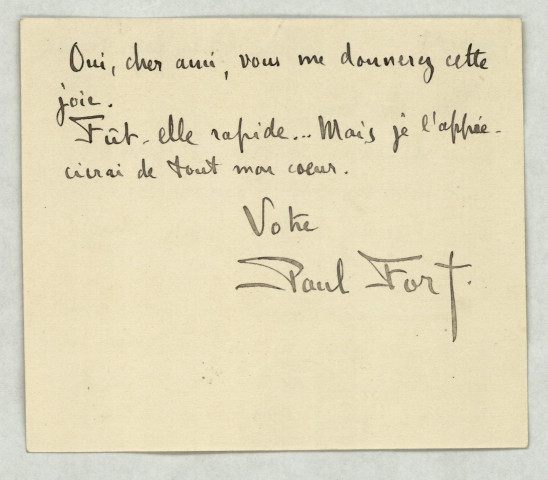 Oui, cher ami, vous me donnerez cette
joie.
Fût-elle rapide... Mais je l'appré-
cierai de tout mon coeur.
Votre
Paul Fort.